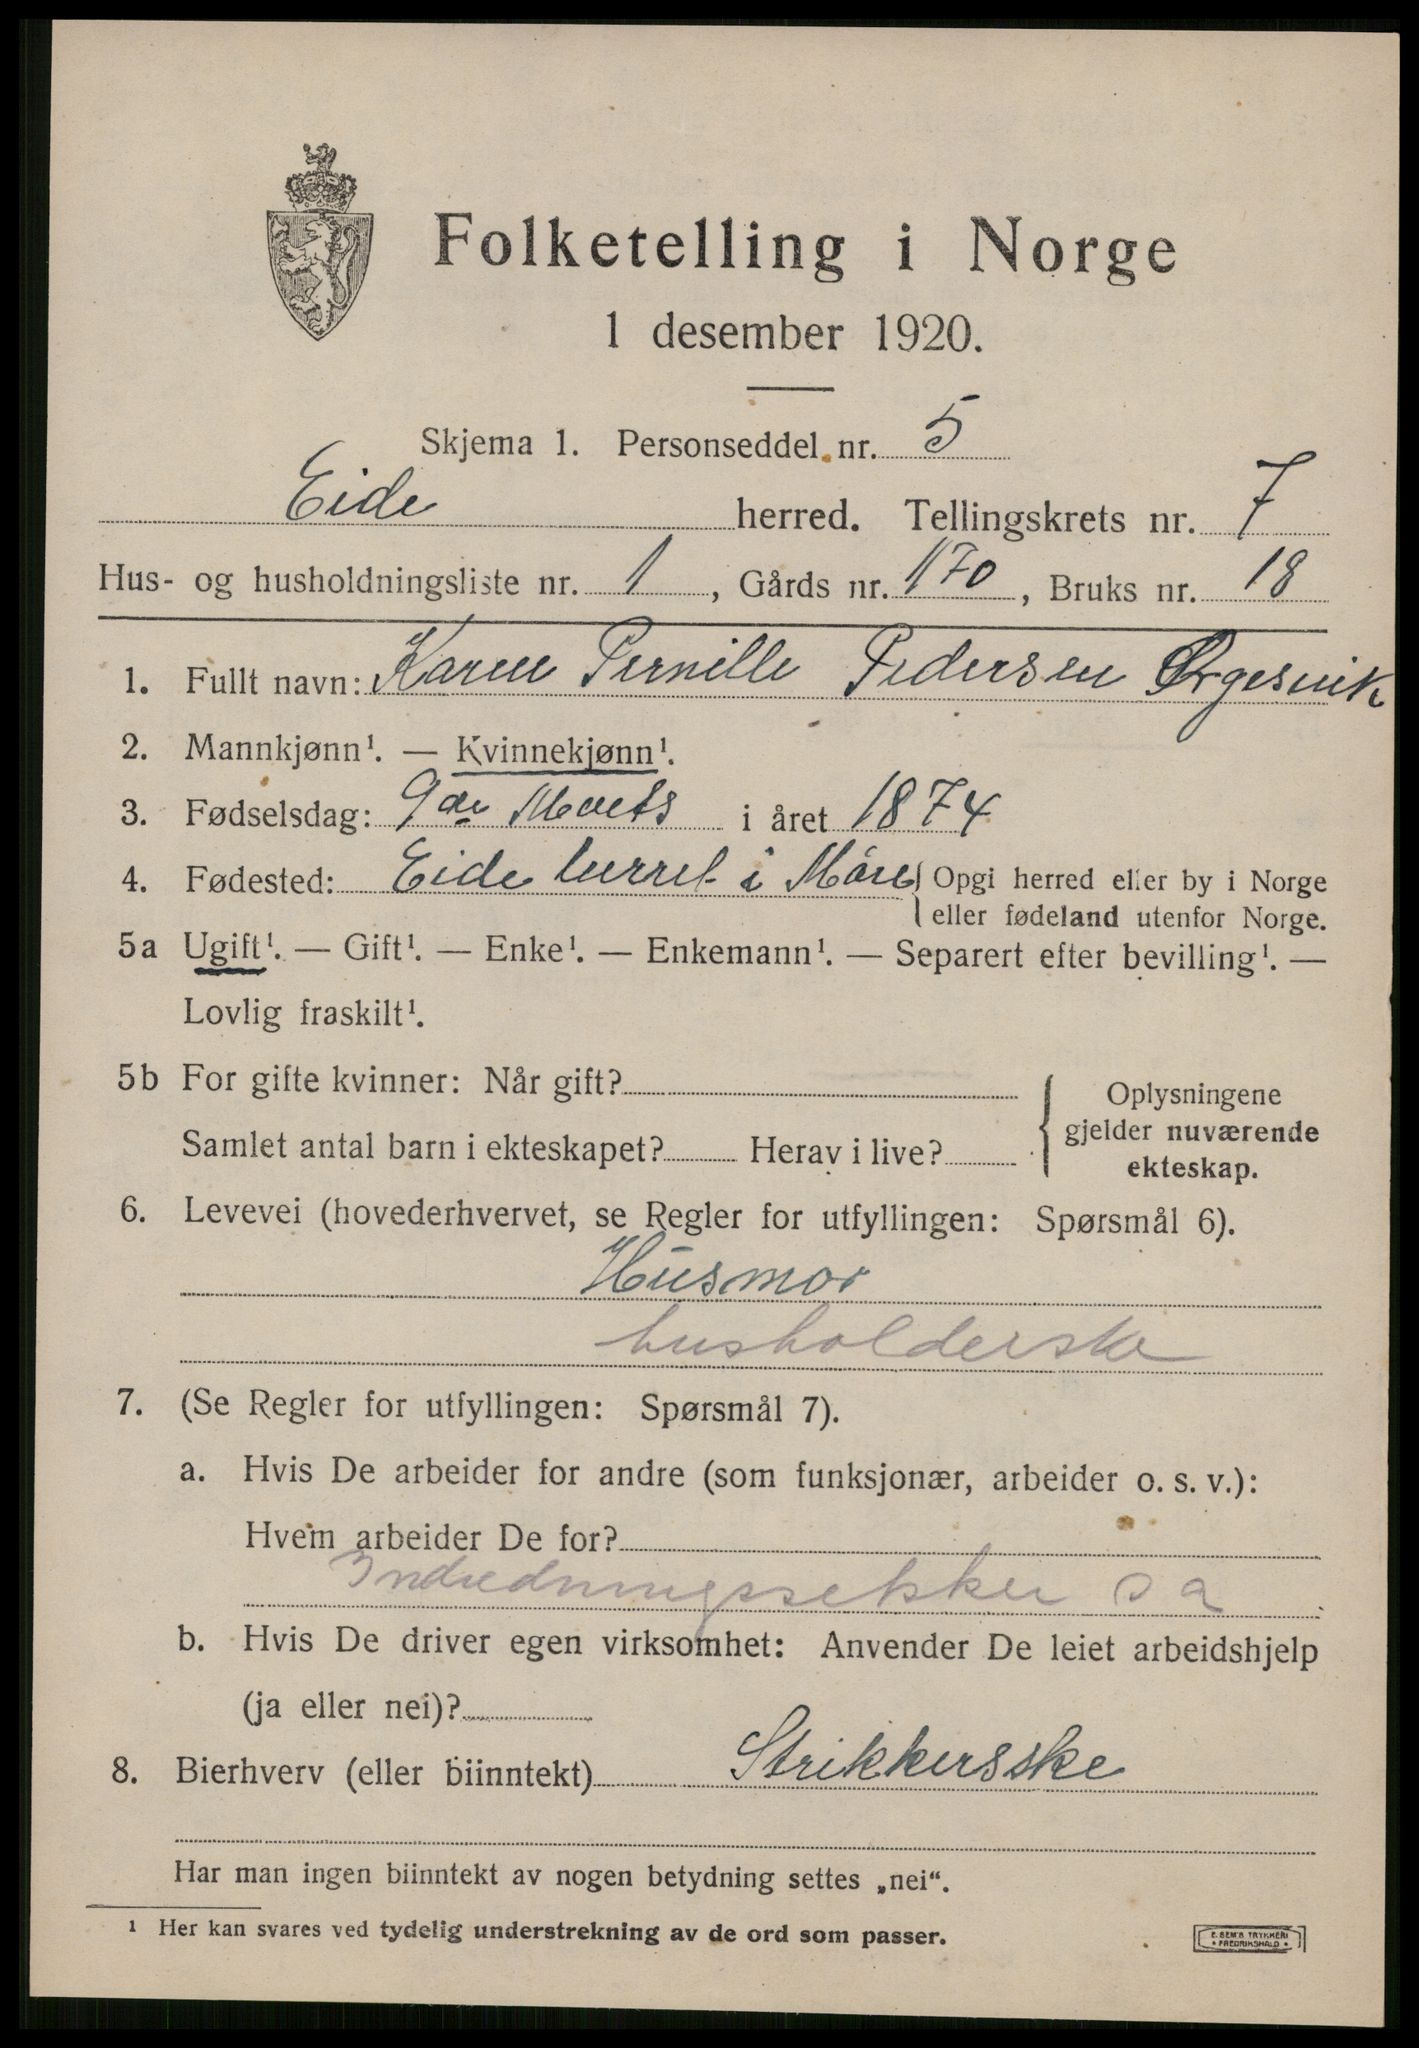 Folketelling i Norge
1 desember 1920.
Skjema 1. Personseddel nr. 5
Eide herred. Tellingskrets nr. 7
Hus- og husholdningsliste nr. 1, Gårds nr. 170, Bruks nr. 18
1. Fullt navn: Karen Pernille Pedersen Ørgesvik
2. Mannkjønn¹. — Kvinnekjønn¹.
3. Fødselsdag: 9de Marts i året 1874
4. Fødested: Eide herred i Möre { Opgi herred eller by i Norge
eller fødeland utenfor Norge.
5a Ugift¹. — Gift¹. — Enke¹. — Enkemann¹. — Separert efter bevilling¹. —
Lovlig fraskilt¹.
5b For gifte kvinner: Når gift?
Samlet antal barn i ekteskapet? Herav i live?
Oplysningene
gjelder nuværende
ekteskap.
6. Levevei (hovederhvervet, se Regler for utfyllingen: Spørsmål 6).
Husmor
husholderske
7. (Se Regler for utfyllingen: Spørsmål 7).
a. Hvis De arbeider for andre (som funksjonær, arbeider o. s. v.):
Hvem arbeider De for?
b. Hvis De driver egen virksomhet: Anvender De leiet arbeidshjelp
(ja eller nei)?
8. Bierhverv (eller biinntekt) Strikkerske
Har man ingen biinntekt av nogen betydning settes „nei“.
¹ Her kan svares ved tydelig understrekning av de ord som passer.
E. SEM'S TRYKKERI
* FREDRIKSHALD *